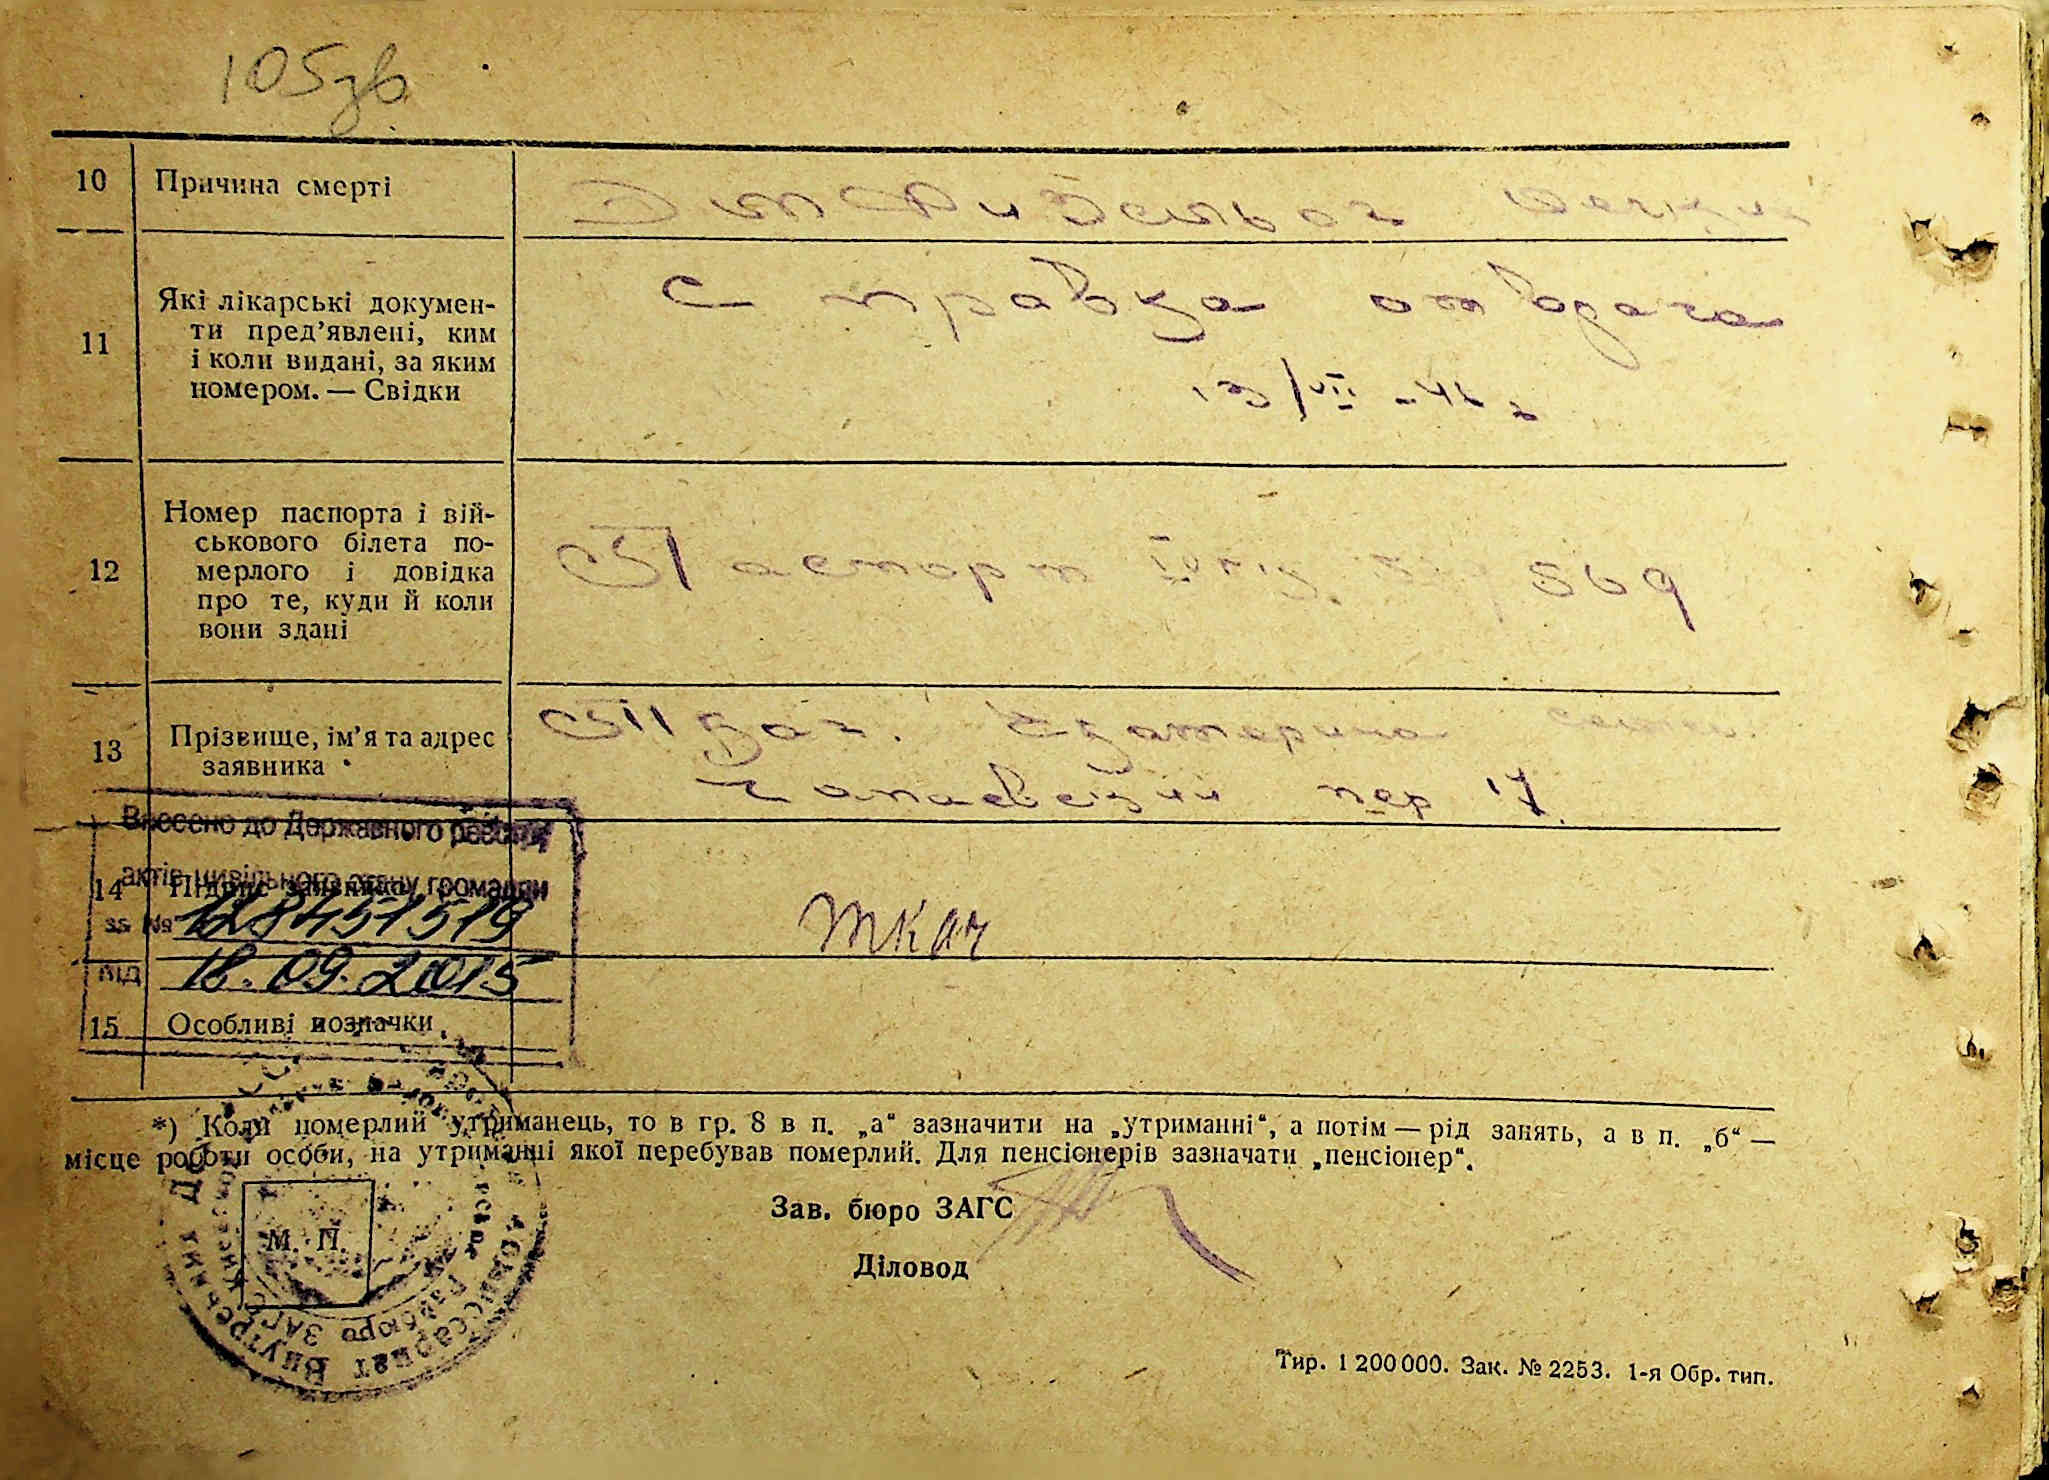 105зв
10 Причина смерті
11 Які лікарські докумен-
ти пред’явлені, ким
і коли видані, за яким
номером. — Свідки
Справка от врача
13/VII -
12 Номер паспорта і вій-
ськового білета по-
мерлого і довідка
про те, куди й коли
вони здані
Паспорт 569
13 Прізвище, ім’я та адрес
заявника
Ткач. Екатерина
Чапаевский пер 17.
Внесено до Державного реєстру
актів цивільного стану громадян
14 Підпис заявника
ТКАЧ
№ 12845751519
від 18.09.2015
15 Особливі позначки
*) Коли померлий утриманець, то в гр. 8 в п. „а“ зазначити на „утриманні“, а потім — рід занять, а в п. „б“ —
місце роботи особи, на утриманні якої перебував померлий. Для пенсіонерів зазначати „пенсіонер“.
М. П.
Зав. бюро ЗАГС
Діловод
Тир. 1 200 000. Зак. № 2253. 1-я Обр. тип.